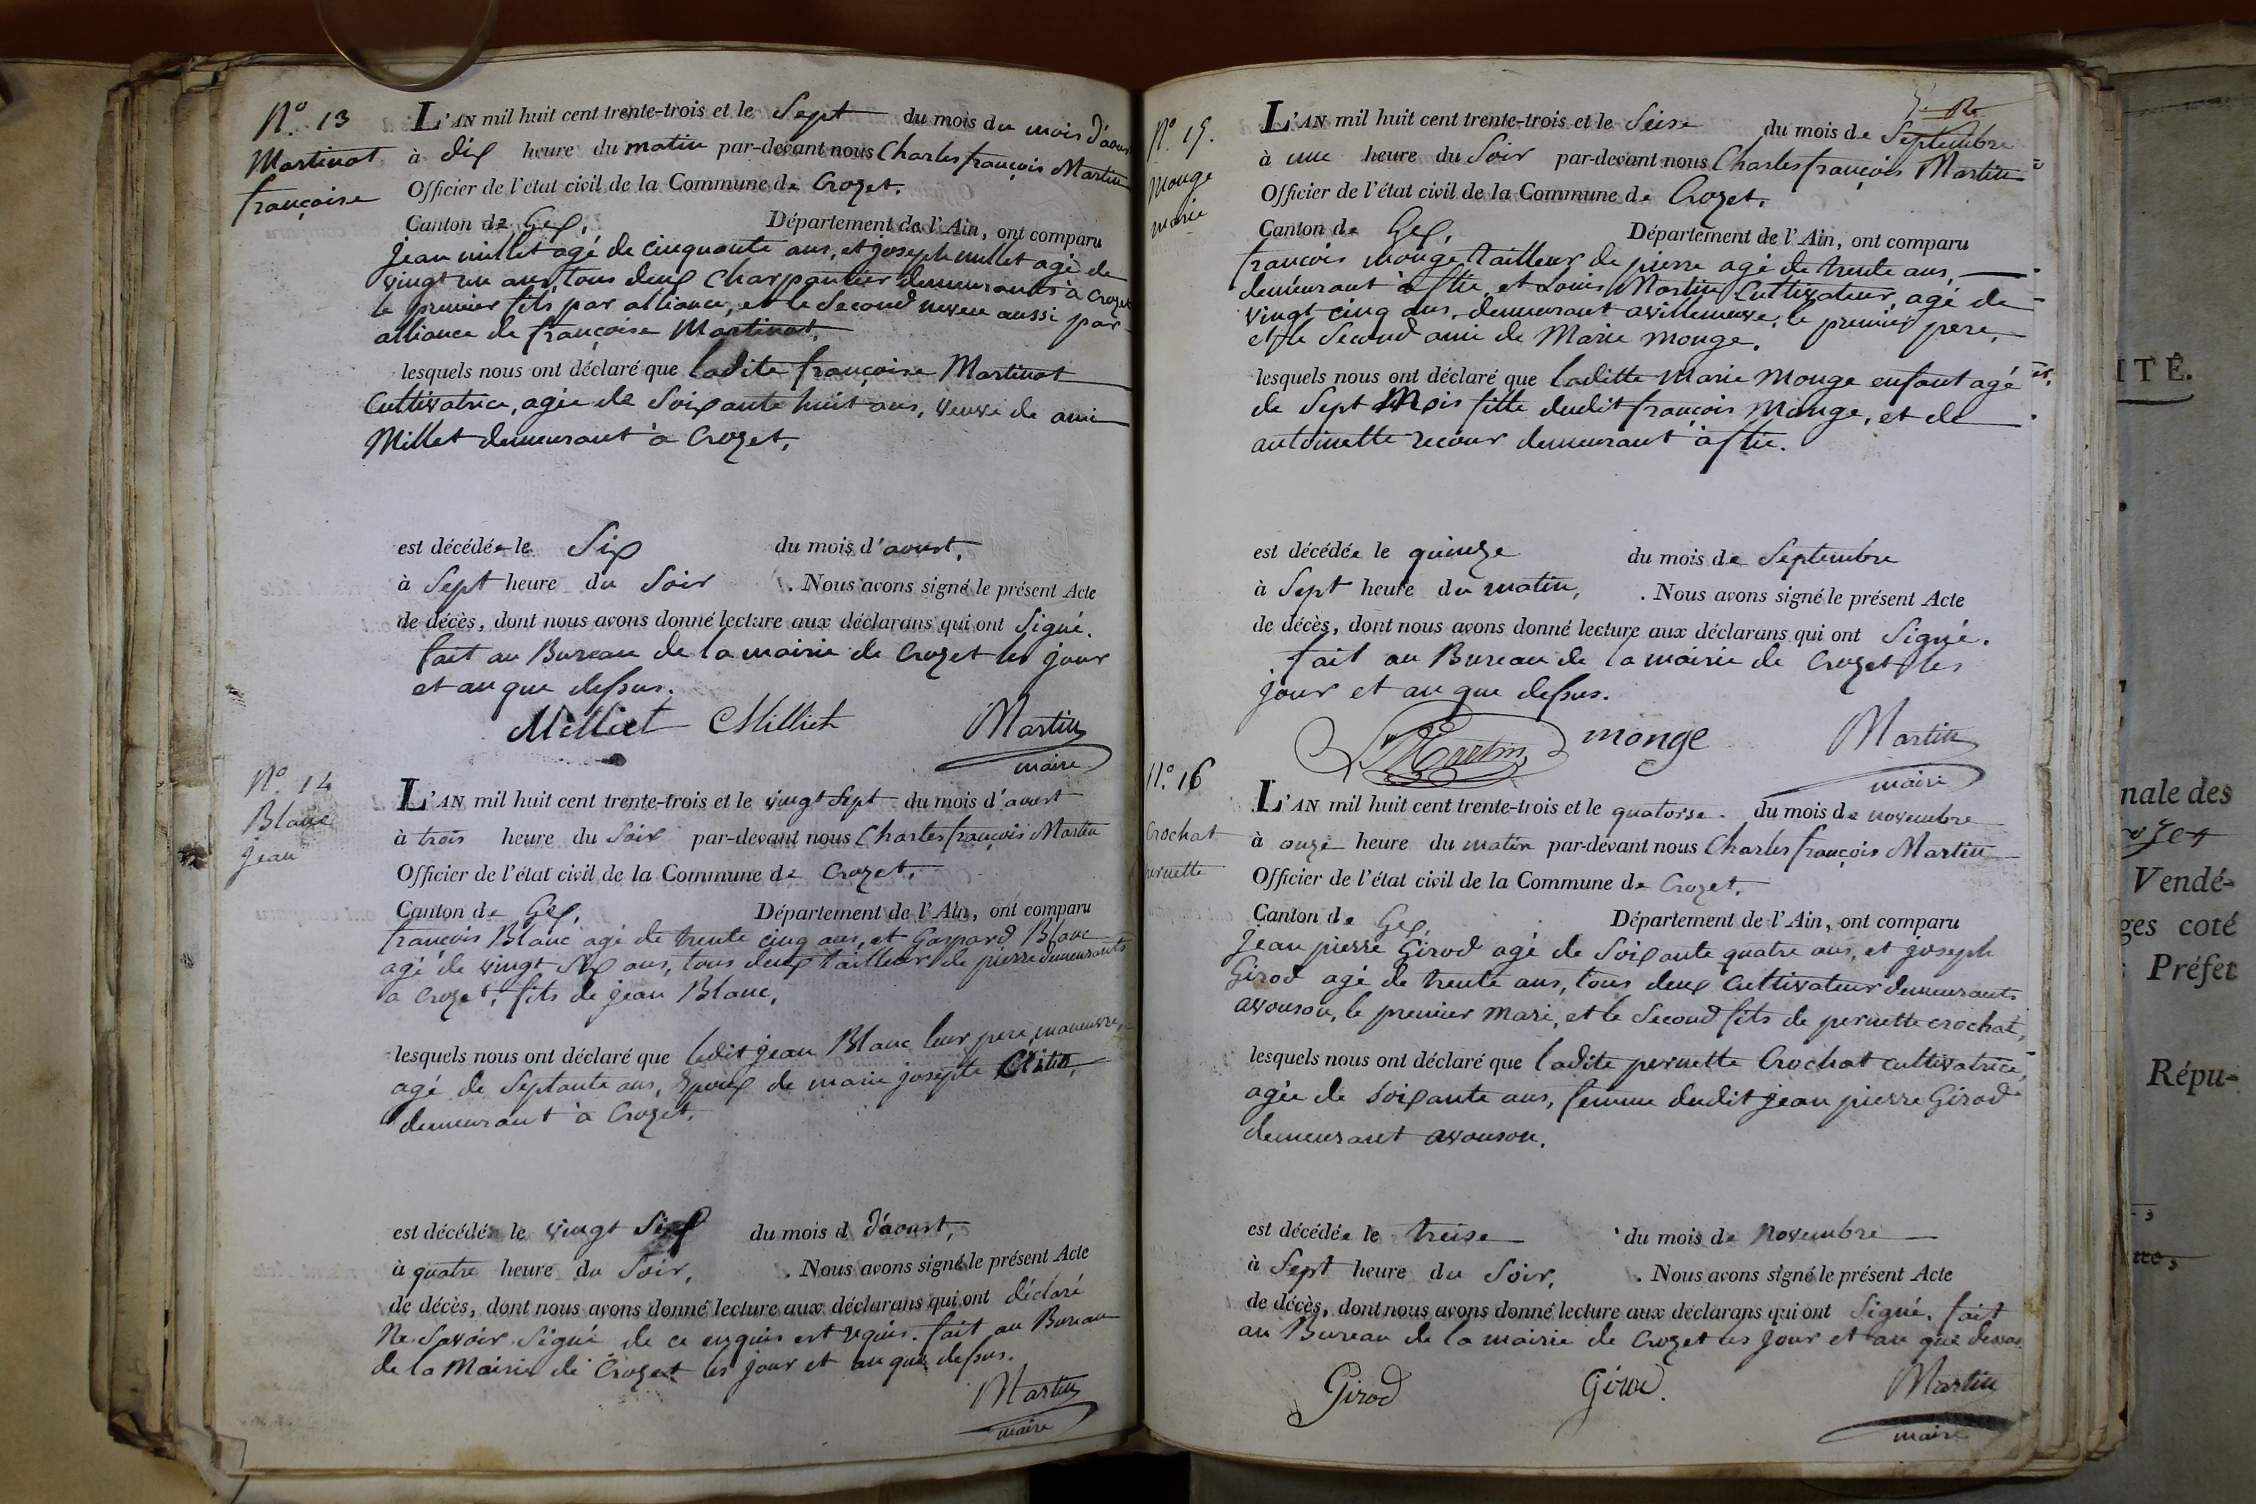 N.° 13
Martinat
françoise
L'AN mil huit cent trente-trois et le Sept du mois du mois d'aoust
à dix heure du matin par-devant nous Charles françois Martin
Officier de l'état civil de la Commune de Crozet.
Canton de Gex. Département de l'Ain, ont comparu
jean millet agé de cinquante ans, et joseph millet agé de
vingt un ans, tous deux charpantier demeurants à Crozet
le premier fils par alliance, et le second neveu aussi par
alliance de françoise Martinat.
lesquels nous ont déclaré que ladite françoise Martinat
Cultivatrice, agée de Soixante huit ans, veuve de ami
Millet demeurant à Crozet.
est décédée le Six du mois d'aoust.
à Sept heure du Soir . Nous avons signé le présent Acte
de décès, dont nous avons donné lecture aux déclarans qui ont Signé.
fait au Bureau de la mairie de Crozet les jour
et an que dessus.
Milliet Milliet Martin
maire
N.° 14
Blanc
jean
L'AN mil huit cent trente-trois et le vingt Sept du mois d'aoust
à trois heure du Soir par-devant nous Charles françois Martin
Officier de l'état civil de la Commune de Crozet.
Canton de Gex. Département de l'Ain, ont comparu
françois Blanc agé de trente cinq ans, et Gaspard Blanc
agé de vingt Six ans, tous deux tailleur de pierre demeurants
à Crozet, fils de jean Blanc.
lesquels nous ont déclaré que ledit jean Blanc leur pere, maneuvre,
agé de Septante ans, Epoux de marie josephte
demeurant à Crozet.
est décédé le vingt Six du mois d d'aoust,
à quatre heure du Soir. . Nous avons signé le présent Acte
de décès, dont nous avons donné lecture aux déclarans qui ont déclaré
Ne Savoir Signé de ce enquis est requis. fait au Bureau
de la Mairie de Crozet les jour et an que dessus.
Martin
maire
12
N.° 15.
Monge
marie
L'AN mil huit cent trente-trois et le Seise du mois de Septembre
à une heure du Soir par-devant nous Charles françois Martin
Officier de l'état civil de la Commune de Crozet.
Canton de Gex. Département de l'Ain, ont comparu
françois monge tailleur de pierre agé de trente ans,
demeurant à et Louis Martin Cultivateur, agé de
vingt cinq ans, demeurant avilleneuve, le premier pere,
et le Second ami de Marie monge.
lesquels nous ont déclaré que laditte Marie Monge enfant agé
de Sept Mois fille dudit françois Monge, et de
antoinette recour demeurant à
est décédée le quinze du mois de Septembre
à Sept heure du matin, . Nous avons signé le présent Acte
de décès, dont nous avons donné lecture aux déclarans qui ont Signé.
fait au Bureau de la mairie de Crozet les
jour et an que dessus.
Martin monge Martin
maire
N.° 16
Crochat
pernette
L'AN mil huit cent trente-trois et le quatorse. du mois de novembre
à onze heure du matin par-devant nous Charles françois Martin
Officier de l'état civil de la Commune de Crozet.
Canton de Gex, Département de l'Ain, ont comparu
jean pierre Girod agé de Soixante quatre ans, et joseph
Girod agé de trente ans, tous deux Cultivateur demeurants
avouson, le premier mari, et le Second fils de pernette crochat,
lesquels nous ont déclaré que ladite pernette Crochat cultivatrice,
agée de soixante ans, femme dudit jean pierre Girod
demeurant avouson.
est décédée le treise du mois de Novembre
à Sept heure du Soir. . Nous avons signé le présent Acte
de décès, dont nous avons donné lecture aux déclarans qui ont Signé. fait
au Bureau de la mairie de Crozet les jour et an que dessus
Girod Girod. Martin
maire
ITÉ.
nale des
Vendé-
ges coté
Préfet
Répu-